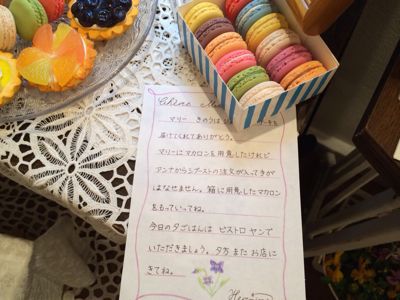 Chère Ma
マリー きのうは ケーキを
届けてくれてありがとう。
マリーにマカロンを用意したけれどビ
アンナからシブーストの注文が入って手が
はなせません。箱に用意したマカロン
をもっていってね。
今日の夕ごはんは ビストロ ヤンで
いただきましょう。夕方 また お店に
きてね。